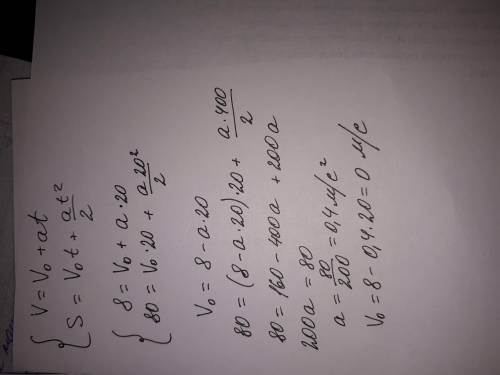 { V = V₀ + at
S = V₀t + at²/2
{ 8 = V₀ + a·20
80 = V₀·20 + a20²/2
V₀ = 8 - a·20
80 = (8 - a·20)·20 + a·400/2
80 = 160 - 400a + 200a
200a = 80
a = 80/200 = 0,4 м/с²
V₀ = 8 - 0,4·20 = 0 м/с